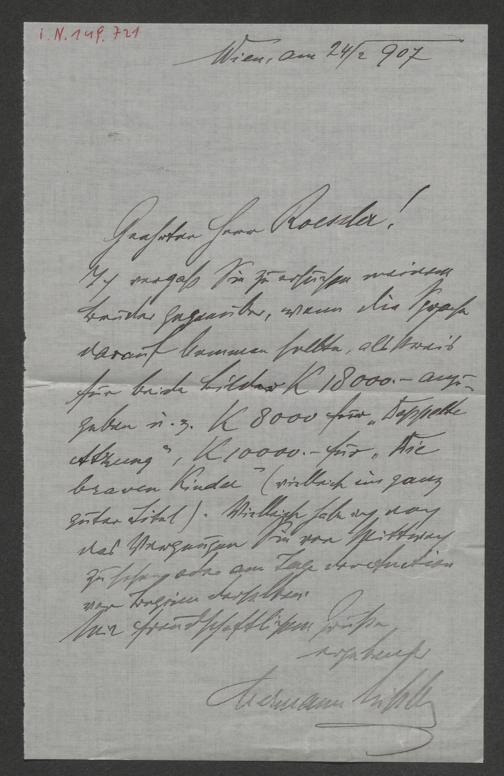 i. N. 149.721
Wien, am 24/2 907
Geehrter Herr Roessler!
Ich vergaß Sie zu ersuchen meinem
Bruder gegenüber, wenn die Sprache
darauf kommen sollte, als Preis
für beide Bilder K 18000.- anzu-
geben u. z. K 8000 für „Doppelte
Atzung", K 10000.- für „Die
braven Kinder" (vielleicht ein ganz
guter Titel). Vielleicht habe ich noch
das Vergnügen Sie vor Mittwoch
zu sehen oder am Tage der Auction
vor Beginn derselben.
Mit freundschaftlichem Gruße,
ergebenst
Hermann